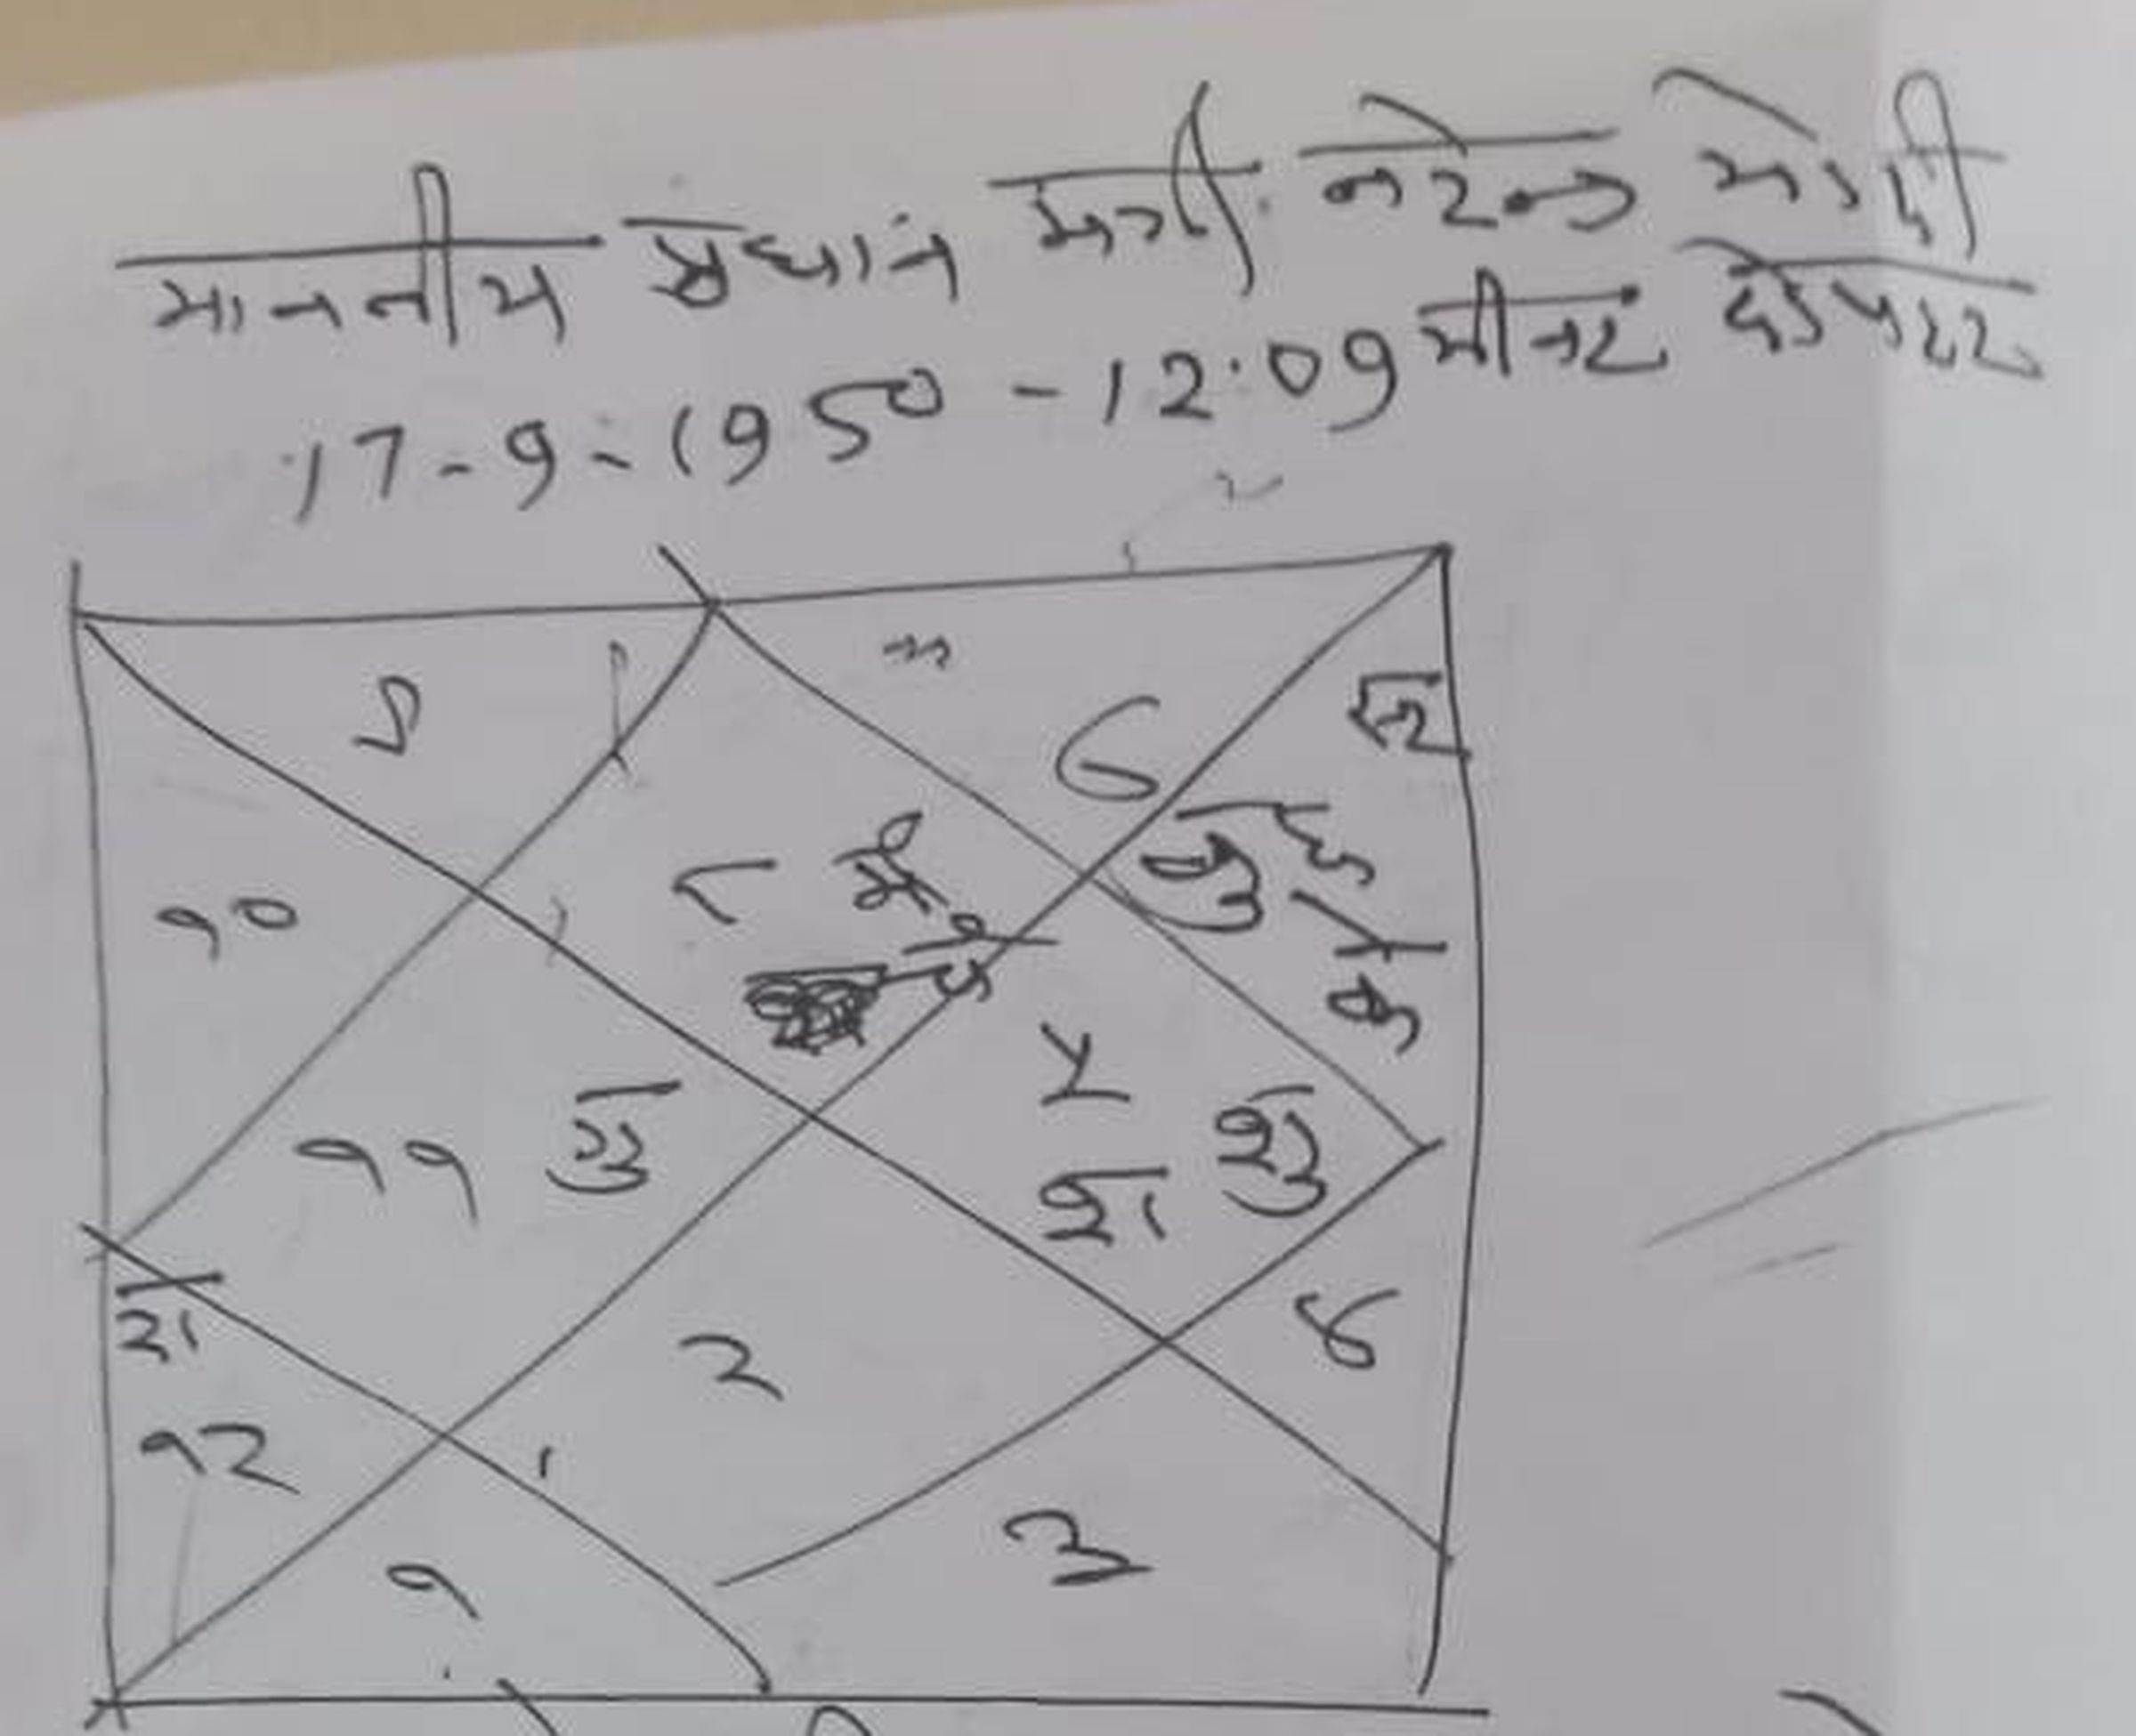 माननीय प्रधान मंत्री नरेन्द्र मोदी
17-9-1950 - 12:09 मीनट दोपहर
९
७
सू
१०
८ मं
चं
बु
के
११ गु
५
शु
श
रा
१२
२
६
१
३